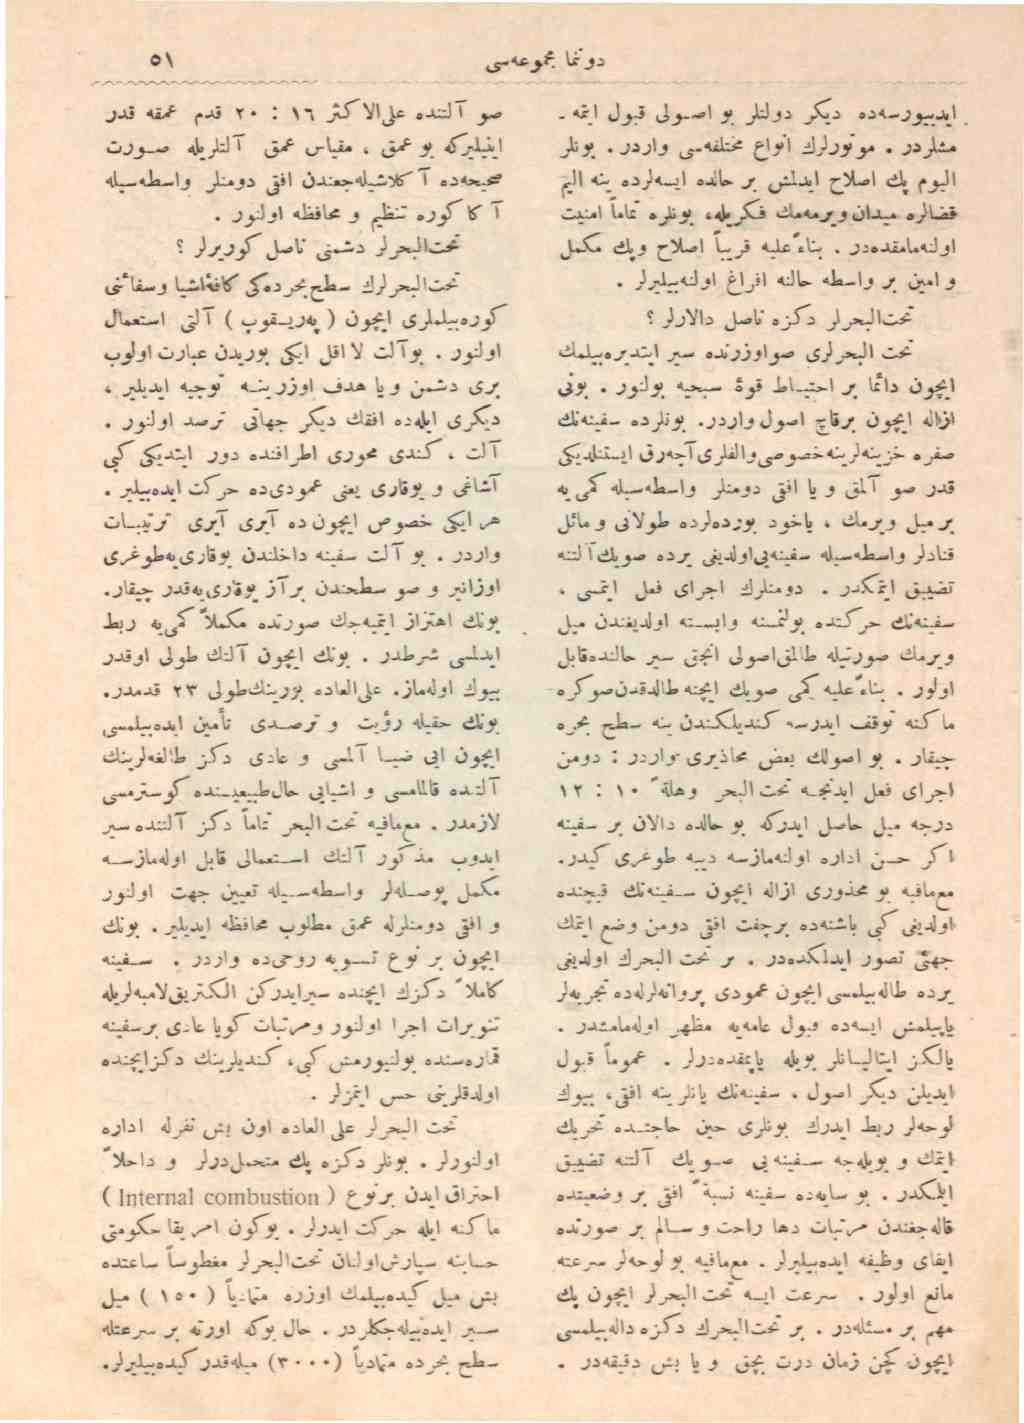 دوننما مجموعه‌سی
٥١
ایدییورسه‌ده دیكر دولتلر بو اصولی قبول ایتمه ـ
مشلردر . موتورلرك انواع مختلفه‌سی واردر . بونلر
الیوم پك اصلاح ایدلمش بر حالده ایسه‌لرده ینه الیم
قضالره میدان ویرمه‌مك فكریله، بونلره تماماً امنیت
اولنه‌مامقده‌در . بناءً علیه قریباً اصلاح وپك مكمل
و امین بر واسطه حالنه افراغ اولنه‌بیلیرلر .
تحت‌البحرلر دكزه ناصل دالارلر ؟
تحت البحرلری صو اوزرنده سیر ایتدیره‌بیلمك
ایچون دائما بر احتیاط قوۀ سبحیه بولنور . بونی
ازاله ایچون برقاچ اصول واردر. بونلرده سفینه‌نك
صفره خزینه‌لرینه‌خصوصی‌والفلری آچه‌رق ایستنلدیكی
قدر صو آلمق و یا افقی دومنلر واسطه‌سیله كمی‌یه
بر میل ویرمك ، یاخود بورده‌لرده طولانی و مائل
قنادلر واسطه‌سیله سفینه‌یی‌اولدیغی یرده صویك‌آلتنه
تضییق ایتمكدر . دومنلرك اجرای فعل ایتمسی ،
سفینه‌نك حركتده بولنمسنه وابسته اولدیغندن میل
ویرمك صورتیله طالمق‌اصولی انجق سیر حالنده‌قابل
اولور . بناءً علیه كمی صویك ایچنه طالدقدن‌صوكره
ماكنه توقف ایدرسه كندیلكندن ینه سطح بحره
چیقار . بو اصولك بعض محاذیری واردر : دومن
اجرای فعل ایدنجه تحت البحر وهلةً ١٠ : ١٢
درجه میل حاصل ایدركه بو حالده دالان بر سفینه
اكر حسن اداره اولنه‌مازسه دیبه طوغری كیدر.
مع‌مافیه بو محذوری ازاله ایچون سفینه‌نك قیچنده
اولدیغی كبی باشنه‌ده برچفت افقی دومن وضع ایتمك
جهتی تصور ایدلمكده‌در . بر تحت البحرك اولدیغی
یرده طاله‌بیلمسی ایچون عمودی پروانه‌لرله‌ده تجربه‌لر
یاپیلمش ایسه‌ده قبول عامه‌یه مظهر اوله‌مامشدر .
یالكز ایتالیانلر بویله یاپمقده‌درلر . عموماً قبول
ایدیلن دیكر اصول ، سفینه‌نك یانلرینه افقی، بیوك
لوحه‌لر ربط ایدرك بونلری حین حاجتده تحریك
ایتمك و بویله‌جه سفینه‌یی صویك آلتنه تضییق
ایلمكدر . بو سایه‌ده سفینه نسبةً افقی بر وضعیتده
قاله‌جغندن مرتبات دها راحت و سالم بر صورتده
ایفای وظیفه ایده‌بیلیرلر . مع‌مافیه بو لوحه‌لر سرعته
مانع اولور . سرعت ایسه تحت البحرلر ایچون پك
مهم بر مسئله‌در . بر تحت‌البحرك دكزه داله‌بیلمسی
ایچون كچن زمان درت بچق و یا بش دقیقه‌در .
صو آلتنده علی‌الاكثر ١٦ : ٢٠ قدم عمقه قدر
اینیلیركه بو عمق ، مقیاس عمق آلتلریله صورت
صحیحه‌ده آكلاشیله‌جغندن افقی دومنلر واسطه‌سیله
آكا كوره تنظیم و محافظه اولنور .
تحت‌البحرلر دشمنی ناصل كوررلر ؟
تحت‌البحرلرك سطح‌بحرده‌كی كافۀاشیا وسفائنی
كوره‌بیلملری ایچون ( په‌ریسقوپ ) آلتی استعمال
اولنور . بوآلت لااقل ایكی بوریدن عبارت اولوب
بری دشمن ویا هدف اوزرینه توجیه ایدیلیر ،
دیكری ایله‌ده افقك دیكر جهاتی ترصد اولنور .
آلت ، كندی محوری اطرافنده دور ایتدیكی كبی
آشاغی و یوقاری یعنی عمودی‌ده حركت ایده‌بیلیر .
هر ایكی خصوص ایچون‌ده آیری آیری ترتیبات
واردر . بو آلت سفینه داخلندن یوقاری‌یه‌طوغری
اوزانیر و صو سطحندن برآز یوقاری‌یه‌قدر چیقار.
بونك اهتزاز ایتمیه‌جك صورتده مكملاً كمی‌یه ربط
ایدلمسی شرطدر . بونك ایچون آلتك طولی اوقدر
بیوك اوله‌ماز. علی‌العاده بورینك‌طولی ٢٣ قدمدر.
بونك حقیله رؤیت و ترصدی تأمین ایده‌بیلمسی
ایچون ایی ضیا آلمسی و عادی دكز طالغه‌لرینك
آلتنده قالمامسی و اشیایی حال‌طبیعیسنده كوسترمسی
لازمدر . مع‌مافیه تحت البحر تماماً دكز آلتنده سیر
ایدوب مذكور آلتك استعمالی قابل اوله‌مازسه
مكمل پوصله‌لر واسطه‌سیله تعیین جهت اولنور
و افقی دومنلرله عمق مطلوب محافظه ایدیلیر . بونك
ایچون بر نوع تسویه روحی‌ده واردر . سفینه
كاملاً دكزك ایچنده سیرایدركن الكتریق‌لامبه‌لریله
تنویرات اجرا اولنور ومرتبات كویا عادی برسفینه
قماره‌سنده بولنیورمش كبی، كندیلرینك دكزایچنده
اولدقلرینی حس ایتمزلر .
تحت البحرلر علی العاده اون بش نفرله اداره
اولنورلر . بونلر دكزه پك متحمل‌درلر و داخلاً
احتراق ایدن برنوع ( Internal combustion )
ماكنه ایله حركت ایدرلر . بوكون امریقا حكومتی
حسابنه سپارش‌اولنان تحت‌البحرلر مغطوساً ساعتده
بش میل كیده‌بیلمك اوزره متمادیاً ( ١٥٠ ) میل
سیر ایده‌بیله‌جكلردر . حال بوكه اورته بر سرعتله
سطح بحرده متمادیاً (٣٠٠٠) میله‌قدر كیده‌بیلیرلر.